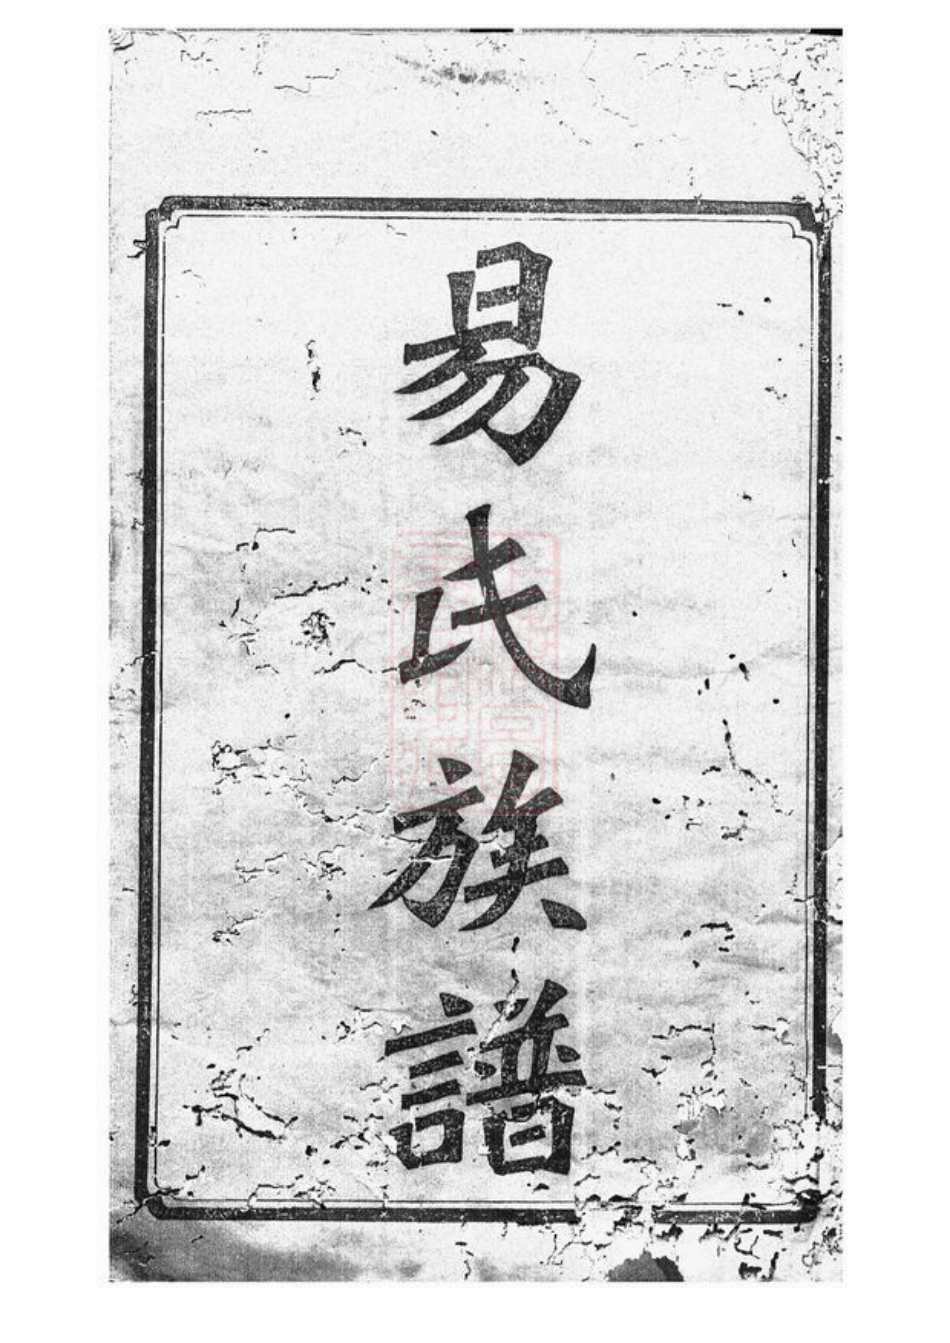 易氏族譜